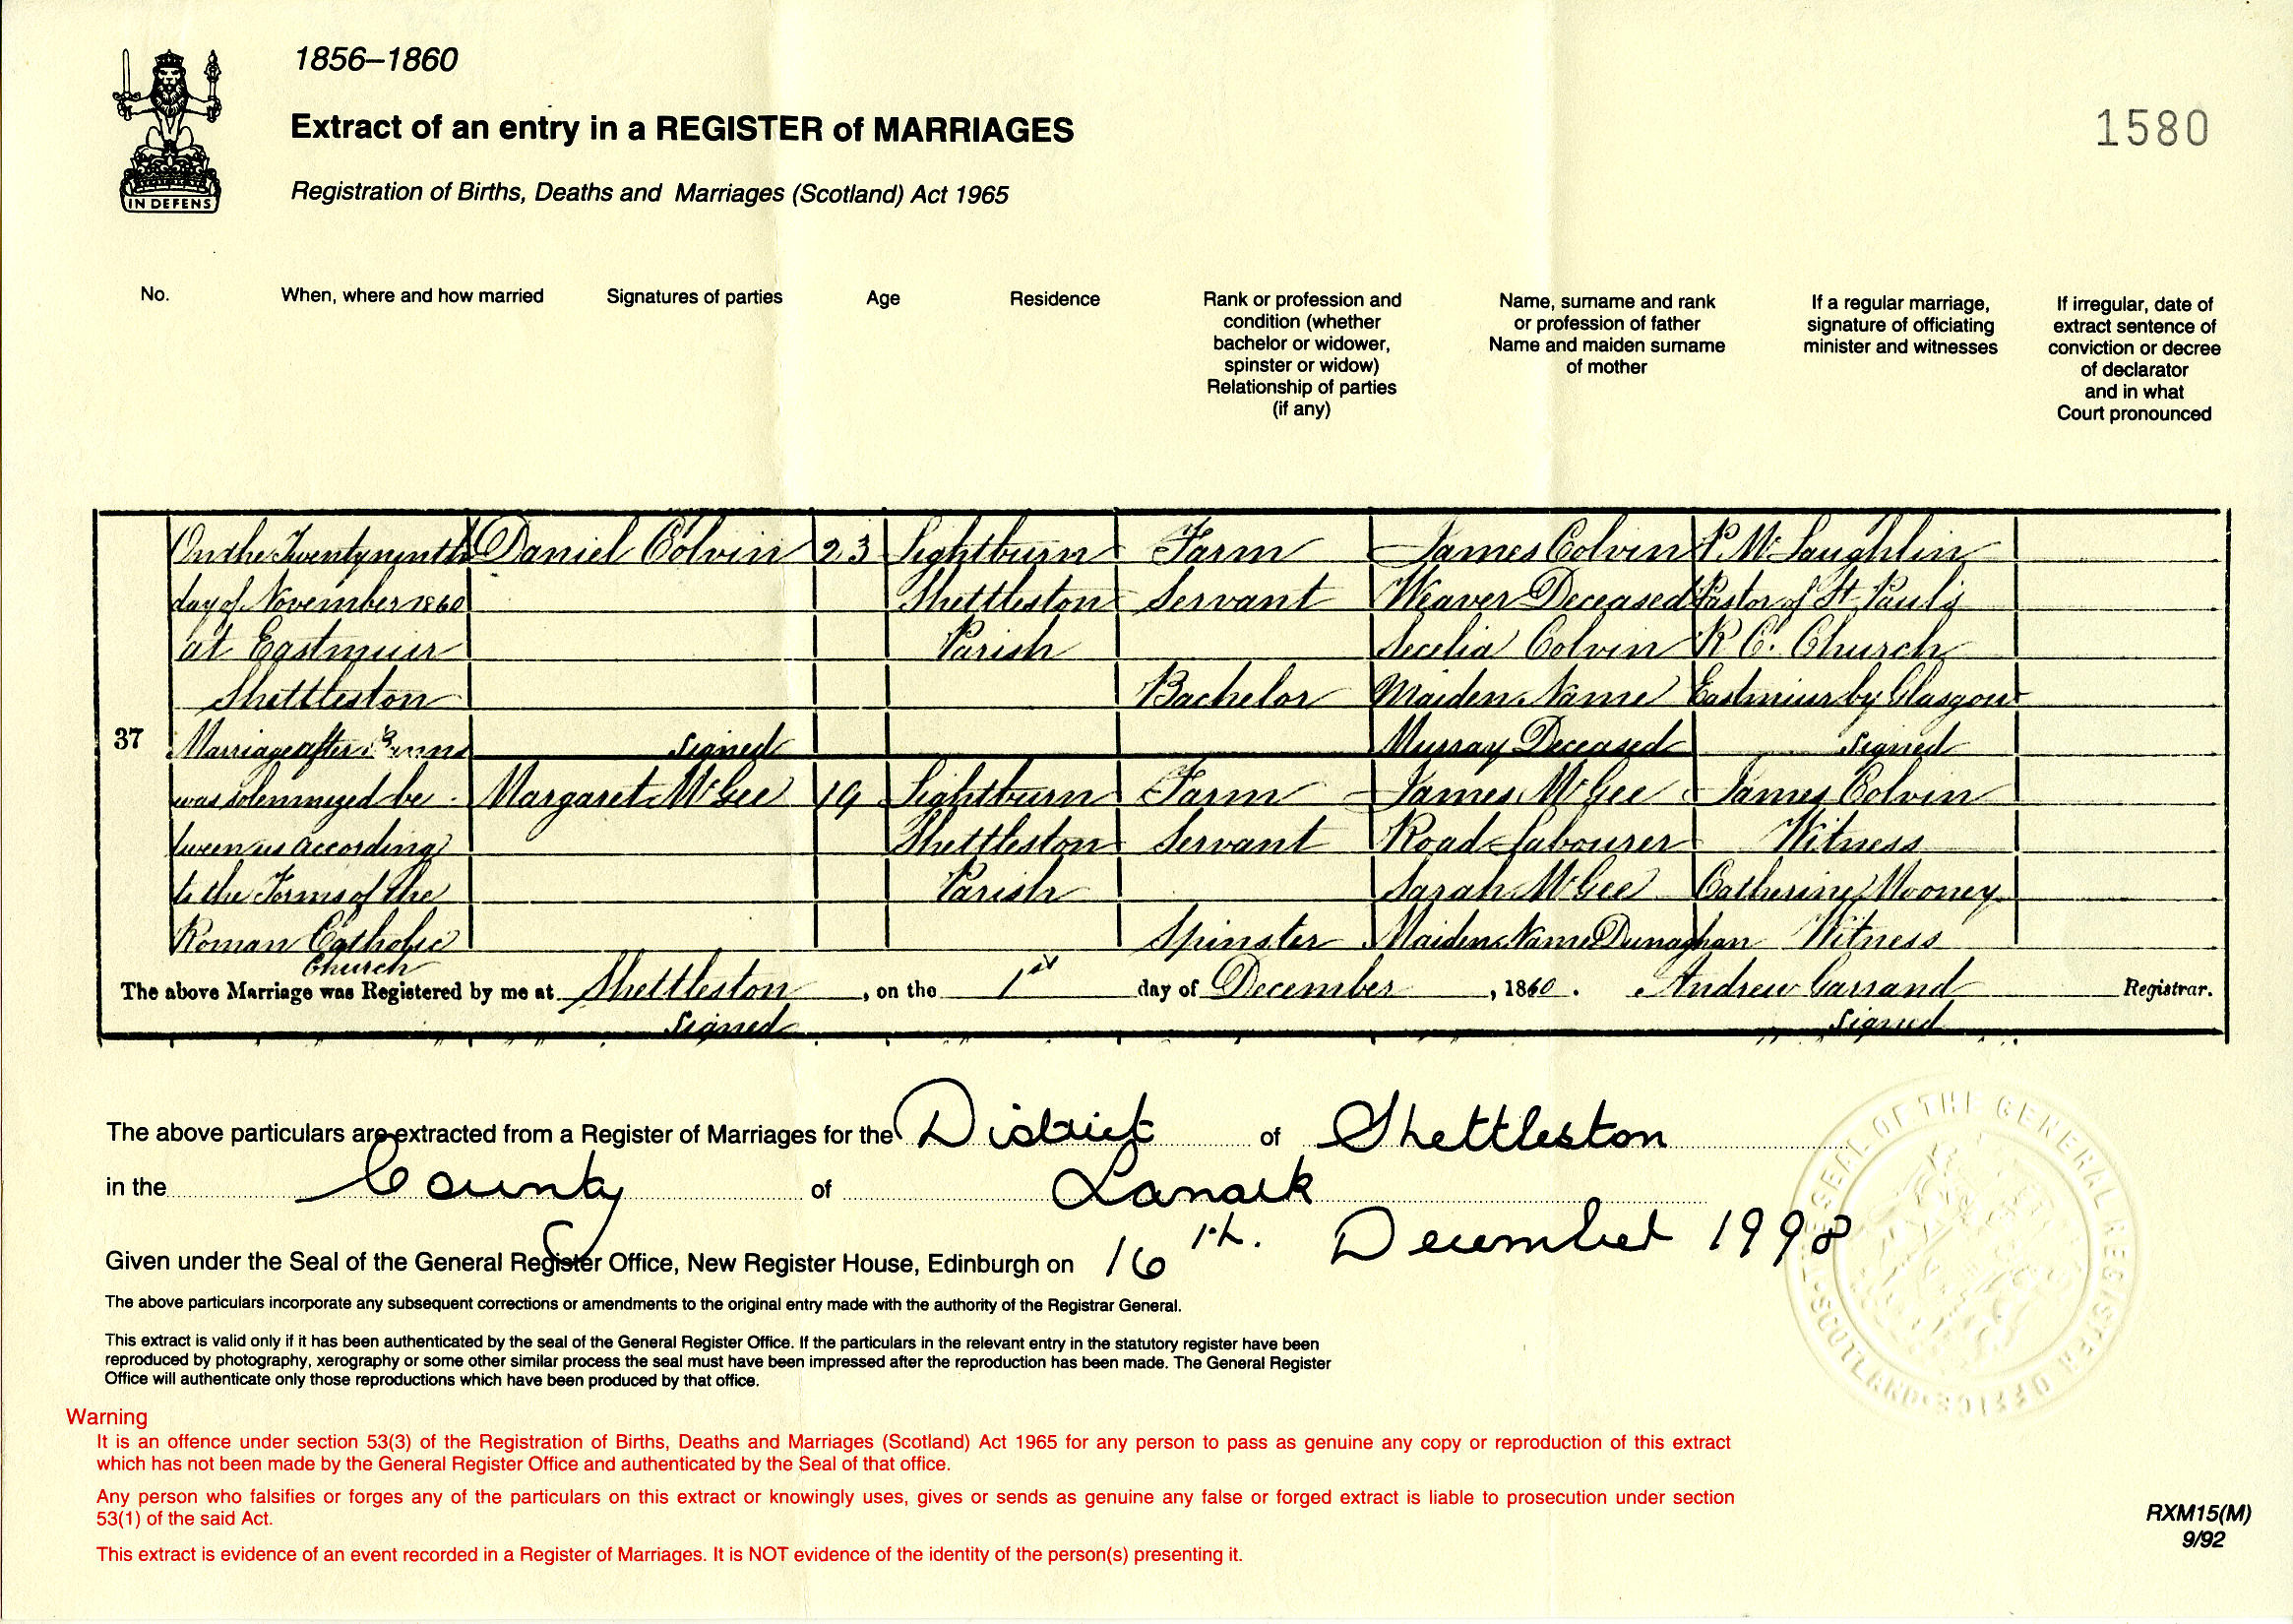 1856–1860
Extract of an entry in a REGISTER of MARRIAGES
1580
Registration of Births, Deaths and Marriages (Scotland) Act 1965
IN DEFENS
No.
When, where and how married
Signatures of parties
Age
Residence
Rank or profession and
condition (whether
bachelor or widower,
spinster or widow)
Relationship of parties
(if any)
Name, surname and rank
or profession of father
Name and maiden surname
of mother
If a regular marriage,
signature of officiating
minister and witnesses
If irregular, date of
extract sentence of
conviction or decree
of declarator
and in what
Court pronounced
37
On the Twentyninth
day of November 1860
at Eastmuir
Shettleston
Marriage after Banns
was solemnized be
tween us according
to the Forms of the
Roman Catholic
Church
Daniel Colvin
signed
Margaret McGee
signed
23
19
Lightburn
Shettleston
Parish
Lightburn
Shettleston
Parish
Farm
Servant
Bachelor
Farm
Servant
Spinster
James Colvin
Weaver Deceased
Secelia Colvin
Maiden Name
Murray Deceased
James McGee
Road Labourer
Sarah McGee
Maiden Name Dunaghan
P. McLaughlin
Pastor of St Paul's
R. C. Church
Eastmuir by Glasgow
signed
James Colvin
Witness
Catherine Mooney
Witness
signed
The above Marriage was Registered by me at Shettleston, on the 1st day of December, 1860. Andrew Garrand Registrar.
The above particulars are extracted from a Register of Marriages for the District of Shettleston
in the County of Lanark
Given under the Seal of the General Register Office, New Register House, Edinburgh on 16th. December 1998
The above particulars incorporate any subsequent corrections or amendments to the original entry made with the authority of the Registrar General.
This extract is valid only if it has been authenticated by the seal of the General Register Office. If the particulars in the relevant entry in the statutory register have been
reproduced by photography, xerography or some other similar process the seal must have been impressed after the reproduction has been made. The General Register
Office will authenticate only those reproductions which have been produced by that office.
SEAL OF THE GENERAL REGISTER OFFICE SCOTLAND
Warning
It is an offence under section 53(3) of the Registration of Births, Deaths and Marriages (Scotland) Act 1965 for any person to pass as genuine any copy or reproduction of this extract
which has not been made by the General Register Office and authenticated by the Seal of that office.
Any person who falsifies or forges any of the particulars on this extract or knowingly uses, gives or sends as genuine any false or forged extract is liable to prosecution under section
53(1) of the said Act.
This extract is evidence of an event recorded in a Register of Marriages. It is NOT evidence of the identity of the person(s) presenting it.
RXM15(M)
9/92